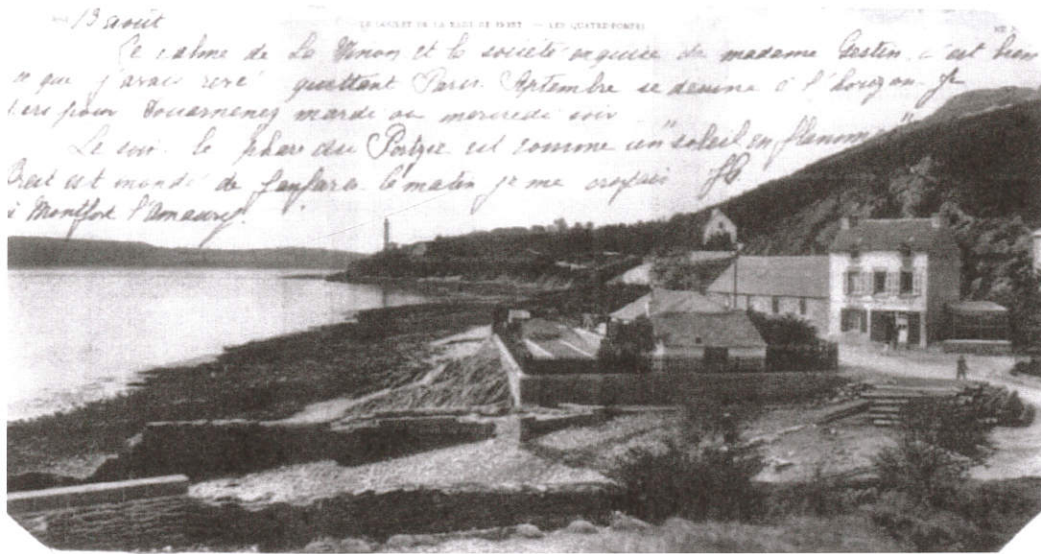 LE GOULET DE LA RADE DE BREST — LES QUATRE-POMPES
13 août
Le calme de Le Minou et la société exquise de madame Gestin, c'est bien
ce que j'avais rêvé quittant Paris. Septembre se dessine à l'horizon. Je
pour Douarnenez mardi ou mercredi soir
Le soir le phare du Portzic est comme un "soleil en flammes"
Brest est inondé de fanfares le matin je me croyais
à Montfort l'Amaury.